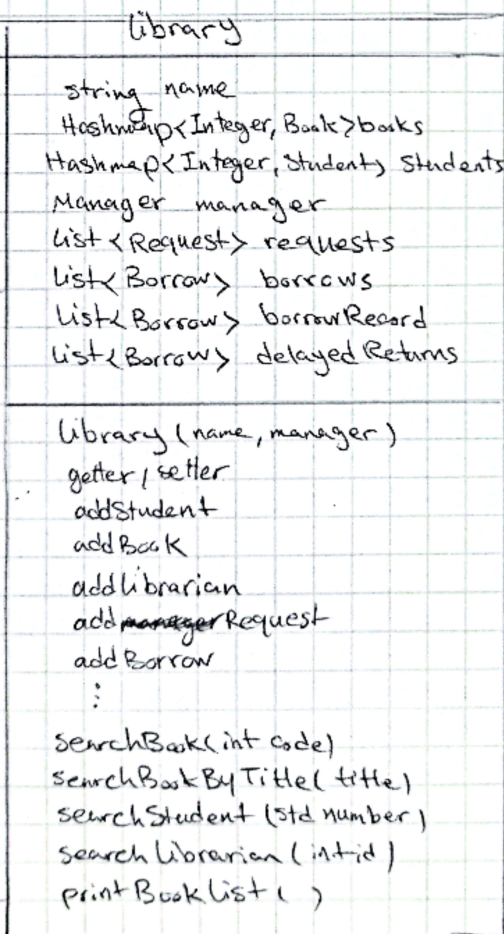 library
string name
Hashmap<Integer, Book>books
Hashmap<Integer, Student> Students
Manager manager
list <Request> requests
list<Borrow> borrows
list<Borrow> borrowRecord
list<Borrow> delayedReturns
library (name, manager)
getter / setter
addStudent
addBook
addlibrarian
add manager Request
addBorrow
⋮
searchBook(int code)
searchBookByTitle( title)
searchStudent (std number)
search librarian ( int id )
printBooklist ( )